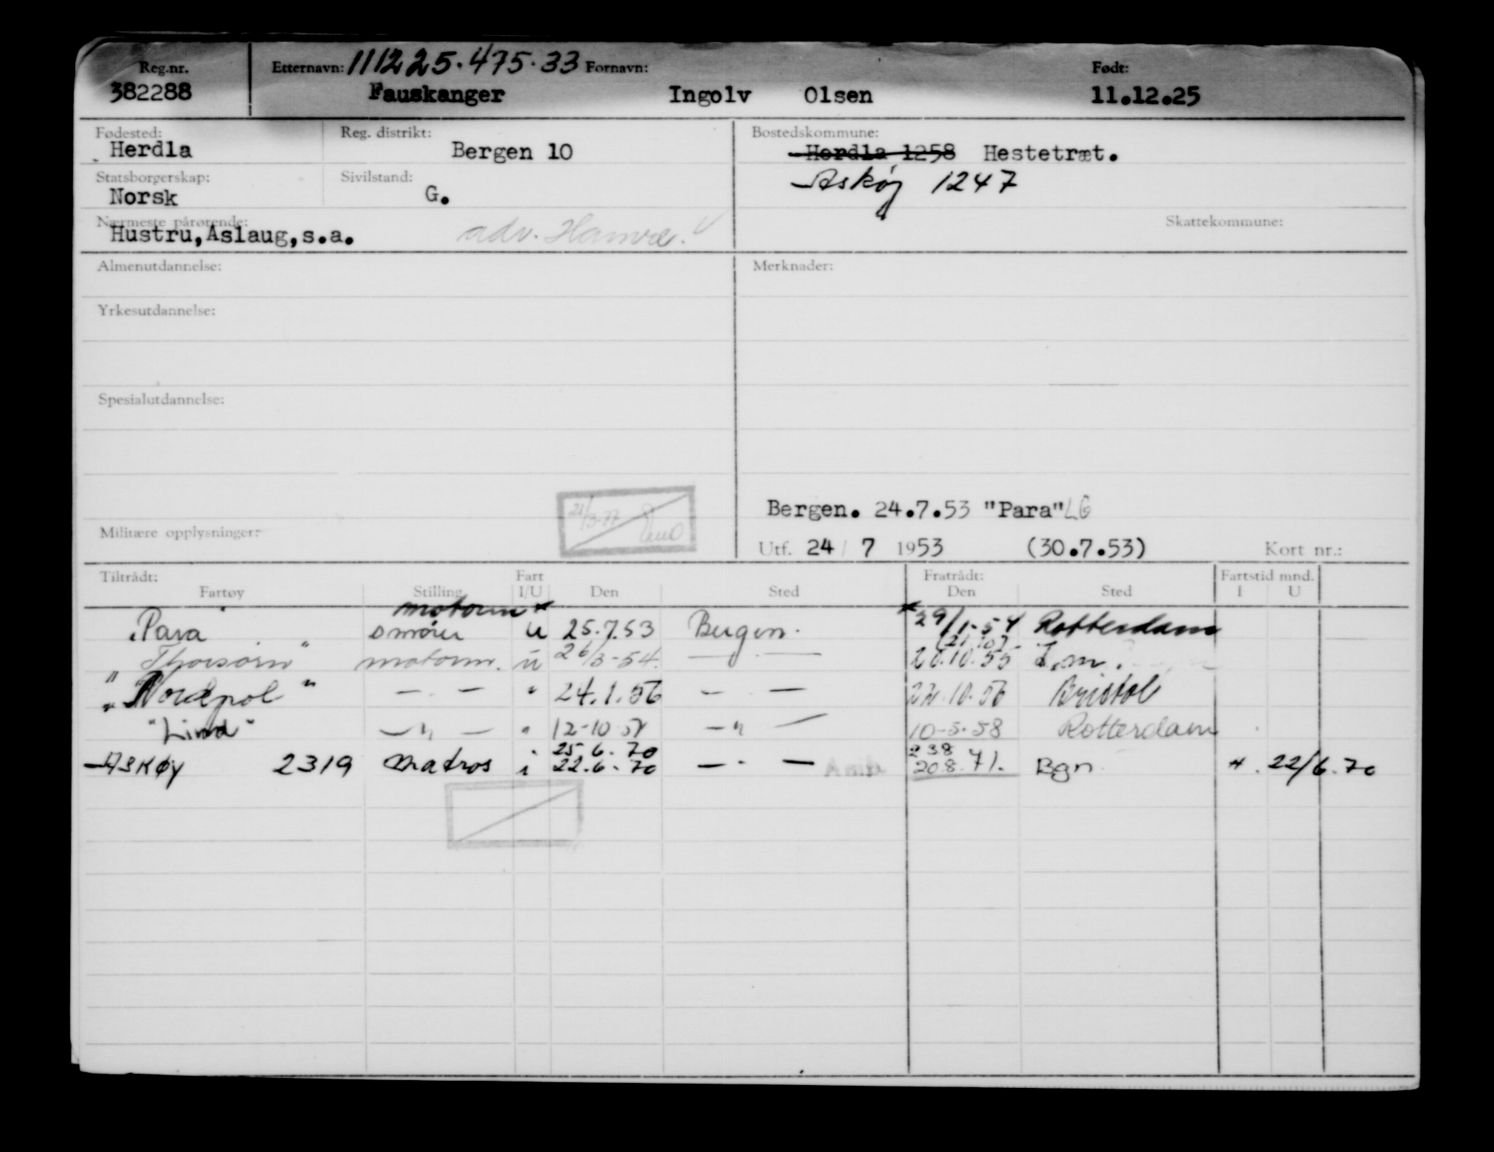 Reg.nr. Etternavn: 111225.475.33 Fornavn: Født:
382288 Fauskanger Ingolv Olsen 11.12.25
Fødested: Reg. distrikt: Bostedskommune:
Herdla Bergen 10 Herdla 1258 Hestetræt.
Statsborgerskap: Sivilstand: Askøy 1247
Norsk G.
Nærmeste pårørende: Skattekommune:
Hustru, Aslaug, s.a. adv.
Almenutdannelse: Merknader:
Yrkesutdannelse:
Spesialutdannelse:
21/3-77
Bergen. 24.7.53 "Para" LG
Militære opplysninger:
Utf. 24 / 7 1953 (30.7.53) Kort nr.:
Tiltrådt: Fart Fratrådt: Fartstid mnd.
Fartøy Stilling I/U Den Sted Den Sted I U
motorm *
"Para" smører U 25.7.53 Bergen. * 29/1-54 Rotterdam
"Thorsørn" motorm. u 26/3-54 — 20.10.55
"Nordpol" — " — " 24.1.56 — " — 22.10.56 Bristol
"Lind" — " — " 12-10 57 — " — 10-5-58 Rotterdam
25.6.70 238
Askøy 2319 Matros i 22.6.70 — " — 20.8.71. Bgn 22/6.70